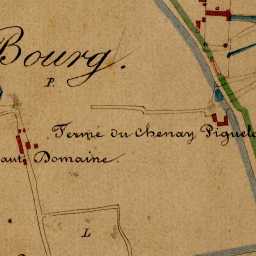 Bourg.
P.
Ferme du Chenay Piquel
aut Domaine.
L